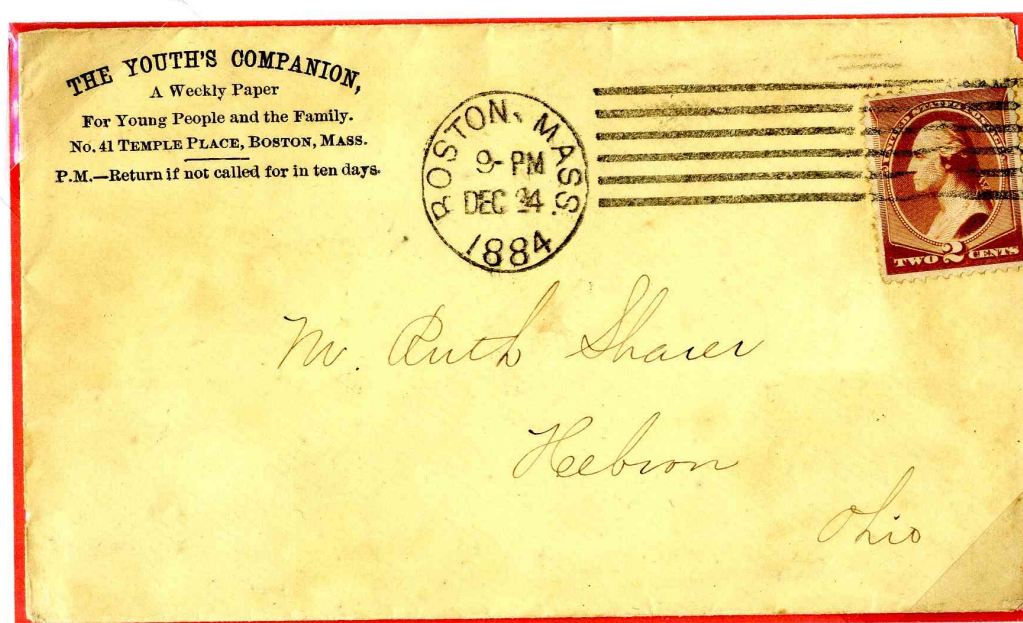 THE YOUTH'S COMPANION,
A Weekly Paper
For Young People and the Family.
No. 41 TEMPLE PLACE, BOSTON, MASS.
P.M.—Return if not called for in ten days.
BOSTON, MASS.
9-PM
DEC 24
1884
UNITED STATES POSTAGE
TWO 2 CENTS
M. Ruth Sharer
Hebron
Ohio